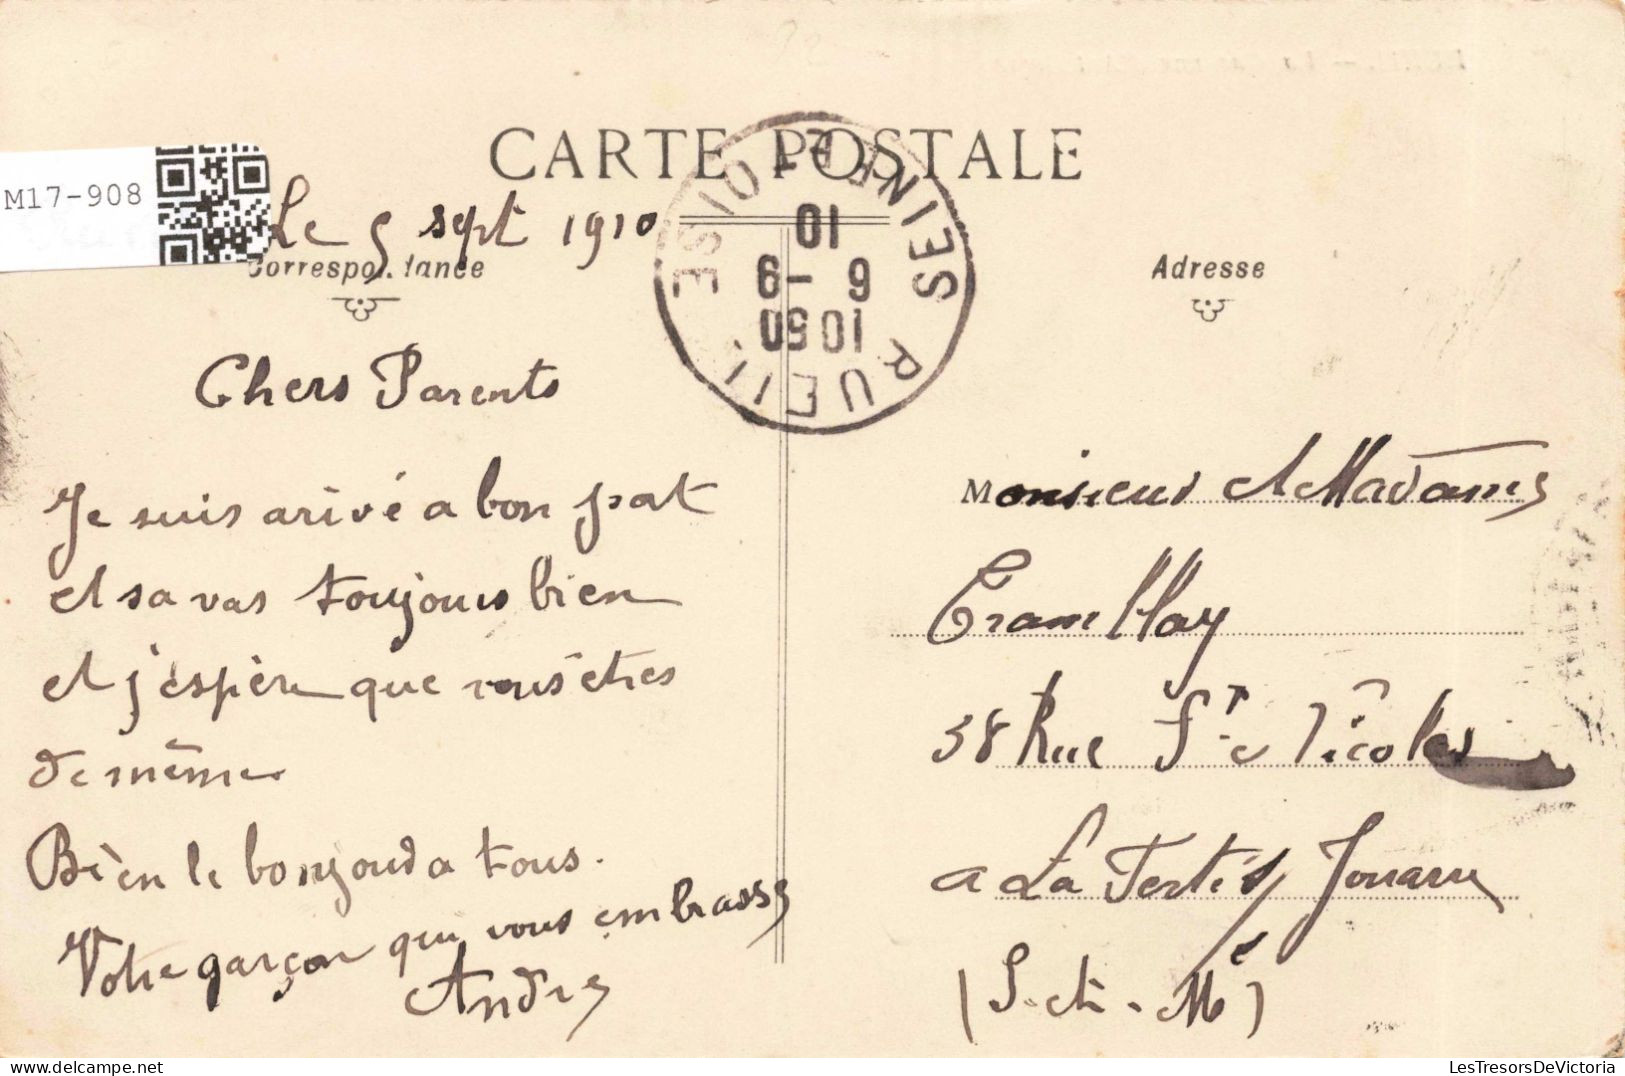 CARTE POSTALE
M17-908
Le 5 sept 1910
Correspondance
Adresse
SEINE ET OISE
RUEIL
10 50
6 - 9
10
Chers Parents
Je suis arivé a bon pat
et sa vas toujours bien
et j'éspère que vous êtres
de même
Bien le bonjoud a tous.
Votre garçon qui vous embrasse
André
Monsieur et Madame
Tramllay
38 Rue St Nicolas
a La Ferté s/ Jouarre
(S. et M)
LesTresorsDeVictoria